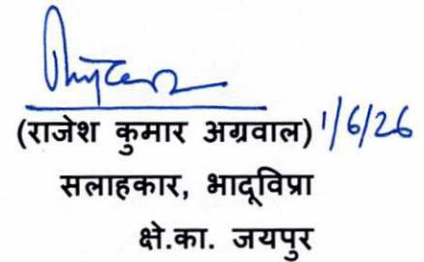 (राजेश कुमार अग्रवाल) 1/6/26
सलाहकार, भादूविप्रा
क्षे.का. जयपुर